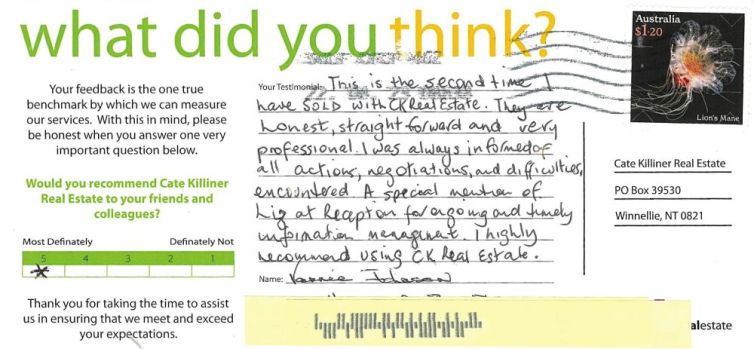 what did you think?
Your feedback is the one true
benchmark by which we can measure
our services. With this in mind, please
be honest when you answer one very
important question below.
Would you recommend Cate Killiner
Real Estate to your friends and
colleagues?
Most Definately Definately Not
5 4 3 2 1
Thank you for taking the time to assist
us in ensuring that we meet and exceed
your expectations.
Your Testimonial: This is the second time I
have SOLD with CK Real Estate. They are
honest, straight forward and very
professional. I was always informed of
all actions, negotiations, and difficulties,
encountered. A special mention of
Liz at Reception for ongoing and timely
information management. I highly
recommend using CK Real Estate.
Name:
Australia
$1.20
Lion's Mane
Cate Killiner Real Estate
PO Box 39530
Winnellie, NT 0821
alestate